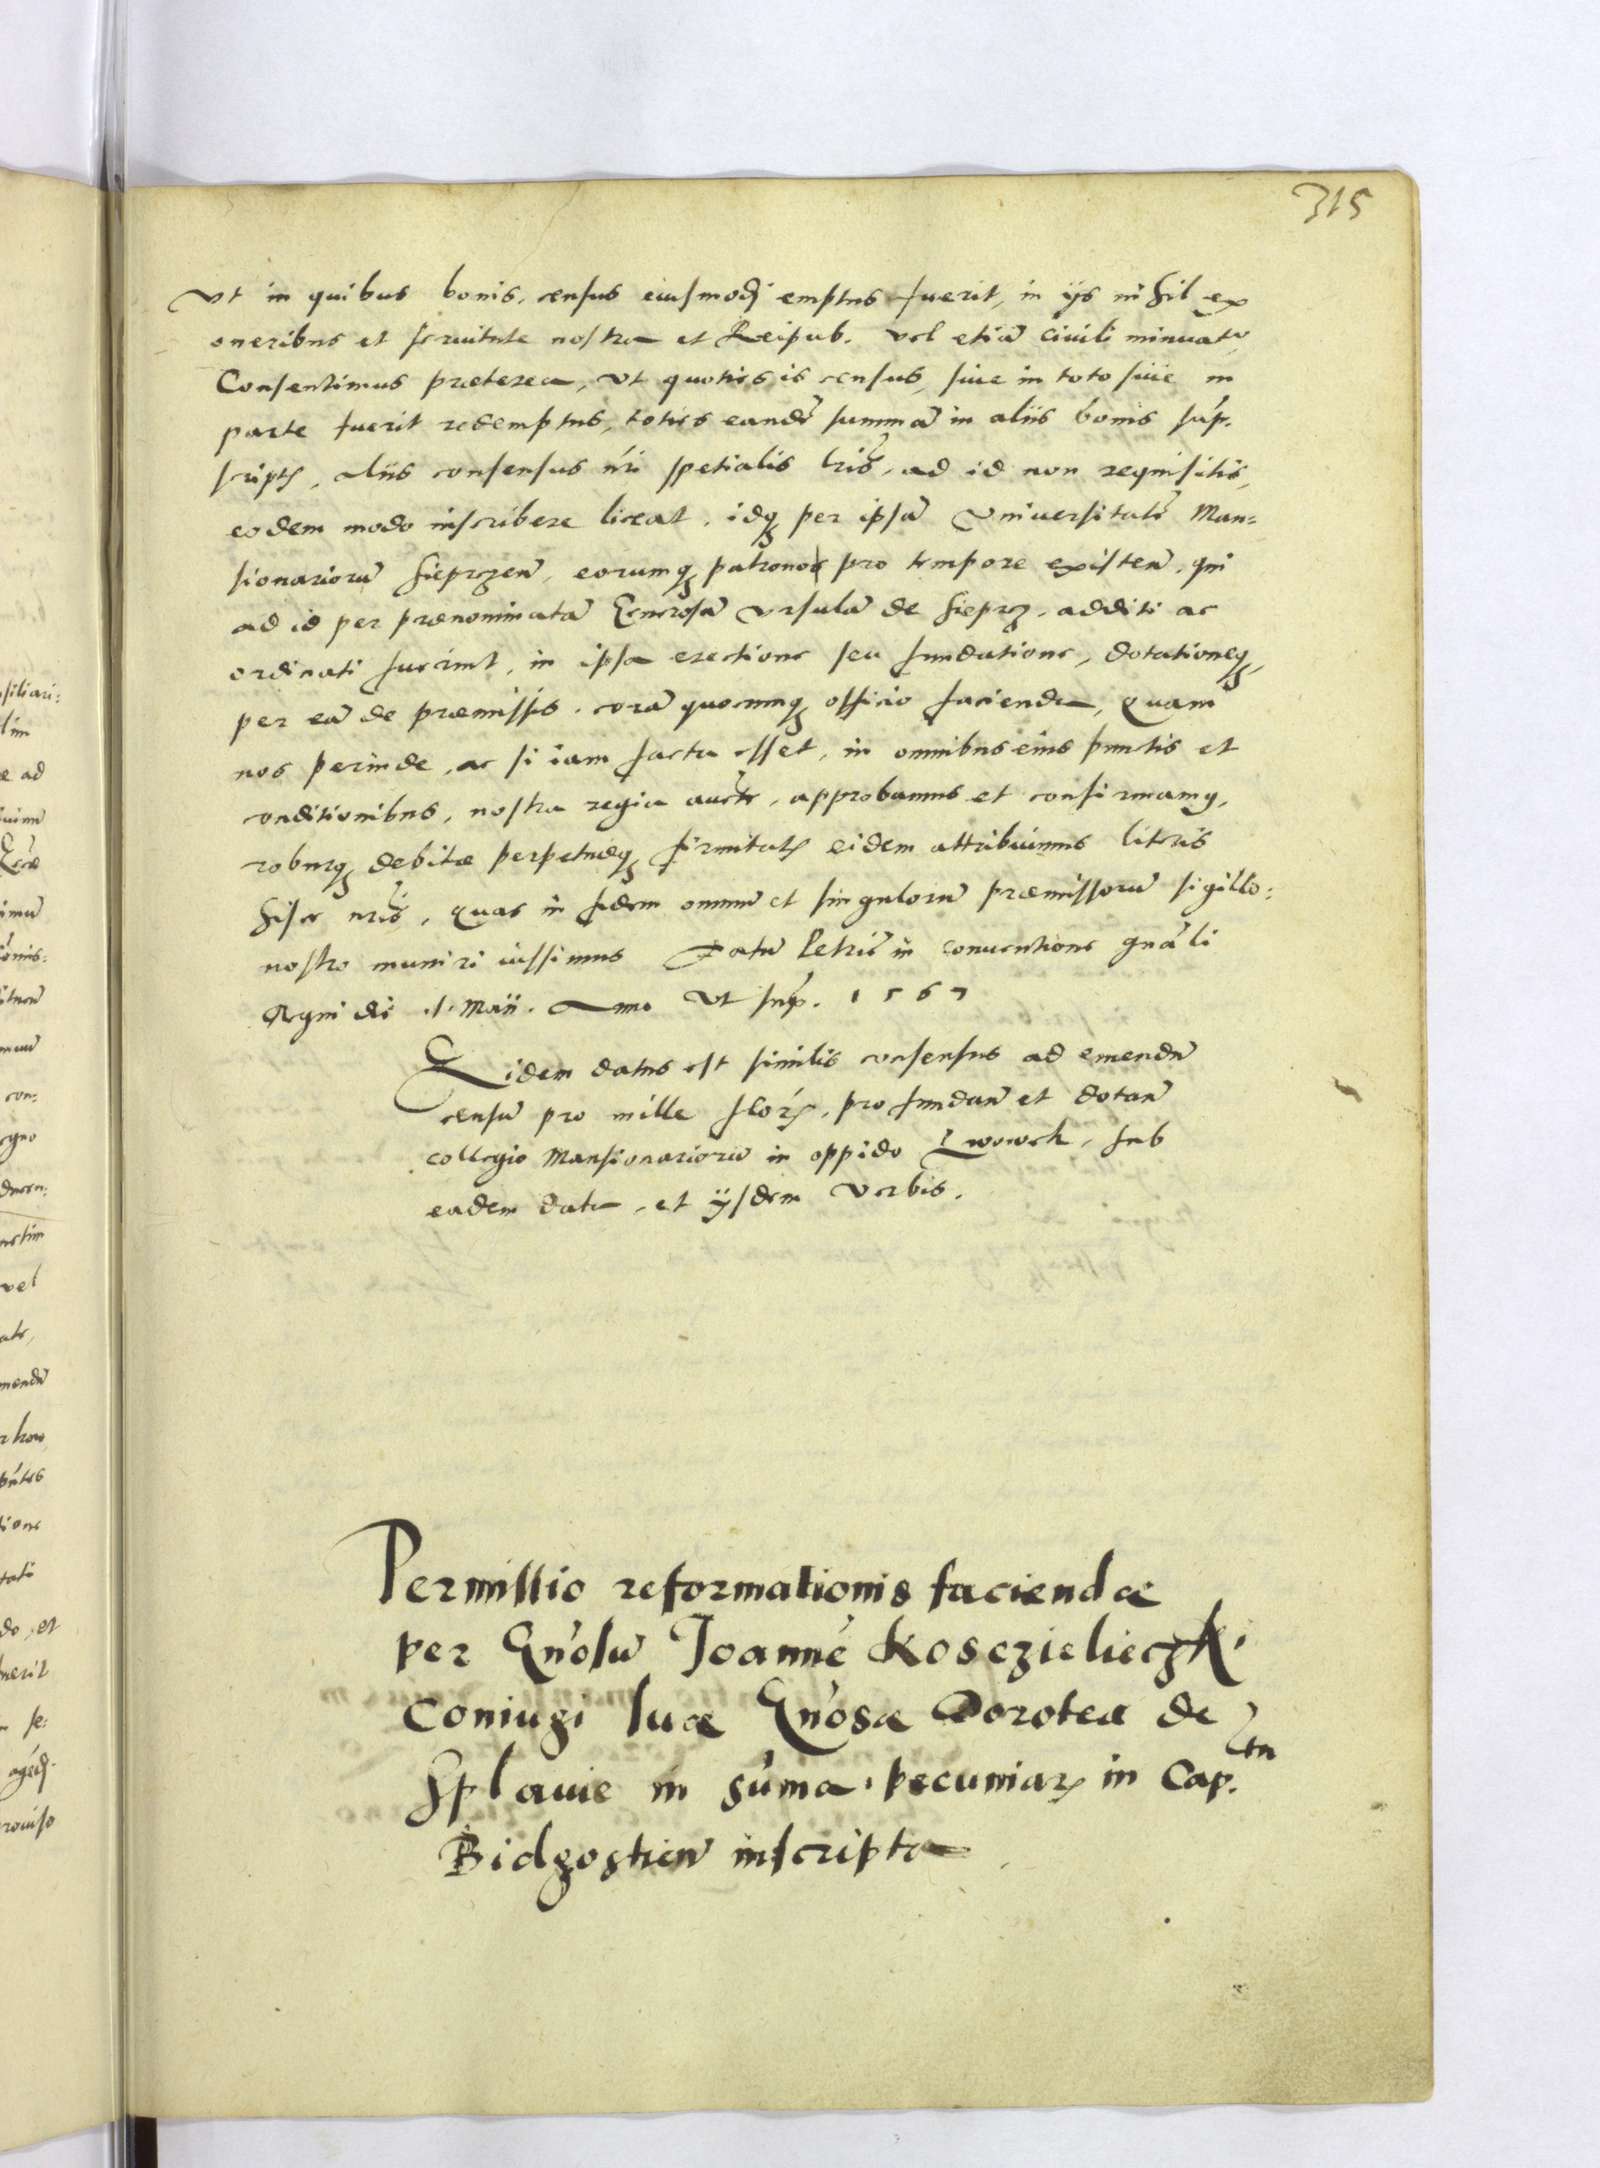 315
Vt in quibus bonis, census eiusmodj emptus fuerit, in ijs nihil ex
oneribus et seruitute nostra et Reipub. vel etiã ciuili minuatr,
Consentimus præterea, vt quoties is census, siue in toto siue in
parte fuerit redemptus, toties eandẽ summã in aliis bonis sup.
scriptj, aliis consensus nri spetialis lris, ad id non requisitis,
eodem modo inscribere liceat, idq per ipsã Vniuersitatẽ Man=
sionariorũ Sieprzeñ, eorumq patronos pro tempore existeñ, qui
ad id per prænominatã Generosã Vrsulã de Sieprz, additi ac
ordinati fuerint, in ipsa erectione seu fundatione, dotationeq,
per eã de præmissis, corã quocumq officio facienda, Quam
nos perinde, ac si iam facta esset, in omnibus eius punctis et
conditionibus, nostra regia aucte, approbamus et confirmamq,
roburq debitæ perpetuæq firmitatj eidem attribuimus literis
hisce nris, Quas in fidem omniũ et singulorũ præmissorũ sigillo:
nostro muniri iussimus Datũ Petric̃ in conuentione gnãli
Regni die .1. Maii. Anno Vt sup. 1567
Eidem datus est similis consensus ad emendũ
censũ pro mille florj, pro fundañ et dotañ
collegio Mansionariorũ in oppido Lwowek, sub
eadem data, et ijsdem verbis.
Permissio reformationis faciendæ
per Gnosũ Joannẽ Kosczielieczki
coniugi suæ Gnosæ Doroteæ de
Splawie in suma pecuniarj in Cap.tu
Bidgostieñ inscripta